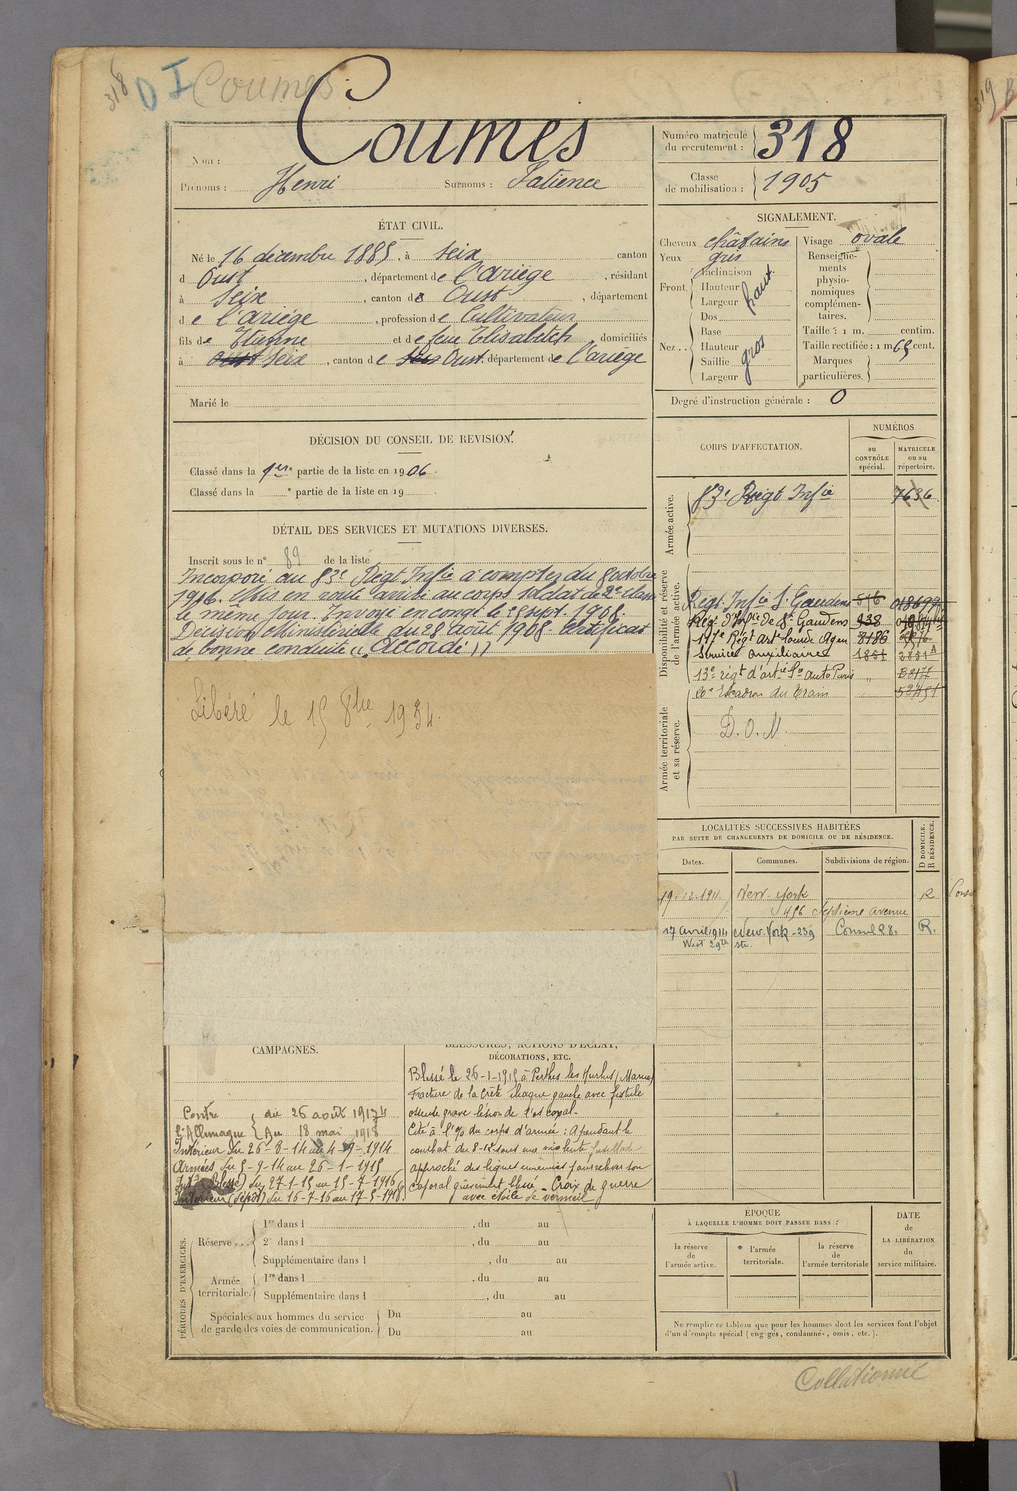 318 D I Coumes
Nom : Coumes
Prénoms : Henri Surnoms : Patience
Numéro matricule du recrutement : 318
Classe de mobilisation : 1905
ÉTAT CIVIL.
Né le 16 décembre 1885, à Seix canton
d Oust, département de l'ariège, résidant
à Seix, canton de Oust, département
de l'ariège, profession de Cultivateur
fils de Etienne et de feue Elisabeth domiciliés
à Oust Seix, canton de Seix Oust département de l'ariège
Marié le
SIGNALEMENT.
Cheveux châtains
Yeux gris
Front. Inclinaison
Hauteur haut.
Largeur
Nez .. Dos
Base
Hauteur gros
Saillie
Largeur
Visage ovale
Renseigne-
ments
physio-
nomiques
complémen-
taires.
Taille : 1 m. centim.
Taille rectifiée : 1 m 65 cent.
Marques
particulières.
Degré d'instruction générale : 0
DÉCISION DU CONSEIL DE REVISION.
Classé dans la 1ere partie de la liste en 1906.
Classé dans la e partie de la liste en 19
DÉTAIL DES SERVICES ET MUTATIONS DIVERSES.
Inscrit sous le n° 89 de la liste
Incorporé au 83e Régt Infie à compter du 8 octobre
1906. Mis en route arrivé au corps soldat de 2e classe
le même jour. Envoyé en congé le 25 sept. 1908.
Décision Ministérielle du 28 août 1908. Certificat
de bonne conduite "Accordé"
Libéré le 15 8bre 1934.
CORPS D'AFFECTATION.
NUMÉROS
au CONTRÔLE spécial.
MATRICULE ou au répertoire.
Armée active.
83e Régt Infie 7636
Disponibilité et réserve de l'armée active.
Régt. Infie St Gaudens 516
Rég. d'Infie de St Gaudens 438
117e Régt artie lourde Agen 8186
Services auxiliaires 1851
13e régt d'artie Ie auto Paris
20e Escadron du Train
D. O. M.
Armée territoriale et sa réserve.
LOCALITÉS SUCCESSIVES HABITÉES
PAR SUITE DE CHANGEMENTS DE DOMICILE OU DE RÉSIDENCE.
Dates. Communes. Subdivisions de région. D DOMICILE. R RÉSIDENCE.
19-12-1911 New York R
456 Septième avenue
17 avril 1914 New-York - 239 Consul 28. R.
West 29th str.
CAMPAGNES.
Contre l'Allemagne du 26 août 1914
Au 18 mai 1918
Intérieur du 26-8-14 au 4-9-1914
Armées du 5-9-14 au 26-1-1915
Intr (Blessé) du 27-1-15 au 15-7-1916
Intérieur (dépôt) du 16-7-16 au 17-5-1918.
BLESSURES, ACTIONS D'ÉCLAT,
DÉCORATIONS, ETC.
Blessé le 26-1-1915 à Perthes les Hurlus (Marne)
Fracture de la crête iliaque gauche avec fistule
osseuse grave lésion de l'os coxal.
Cité à l'% du corps d'armée : a pendant le
combat du sous une violente fusillade
approché des lignes ennemies pour chercher son
caporal grièvement blessé. Croix de guerre
avec étoile de vermeil
PÉRIODES D'EXERCICES.
Réserve . . . 1re dans l , du au
2e dans l , du au
Supplémentaire dans l , du au
Armée territoriale. 1re dans l , du au
Supplémentaire dans l , du au
Spéciales aux hommes du service de garde des voies de communication. Du au
Du au
ÉPOQUE
À LAQUELLE L'HOMME DOIT PASSER DANS :
la réserve de l'armée active.
l'armée territoriale.
la réserve de l'armée territoriale
DATE de LA LIBÉRATION du service militaire.
Ne remplir ce tableau que pour les hommes dont les services font l'objet
d'un décompte spécial (engagés, condamnés, omis, etc.).
Collationné